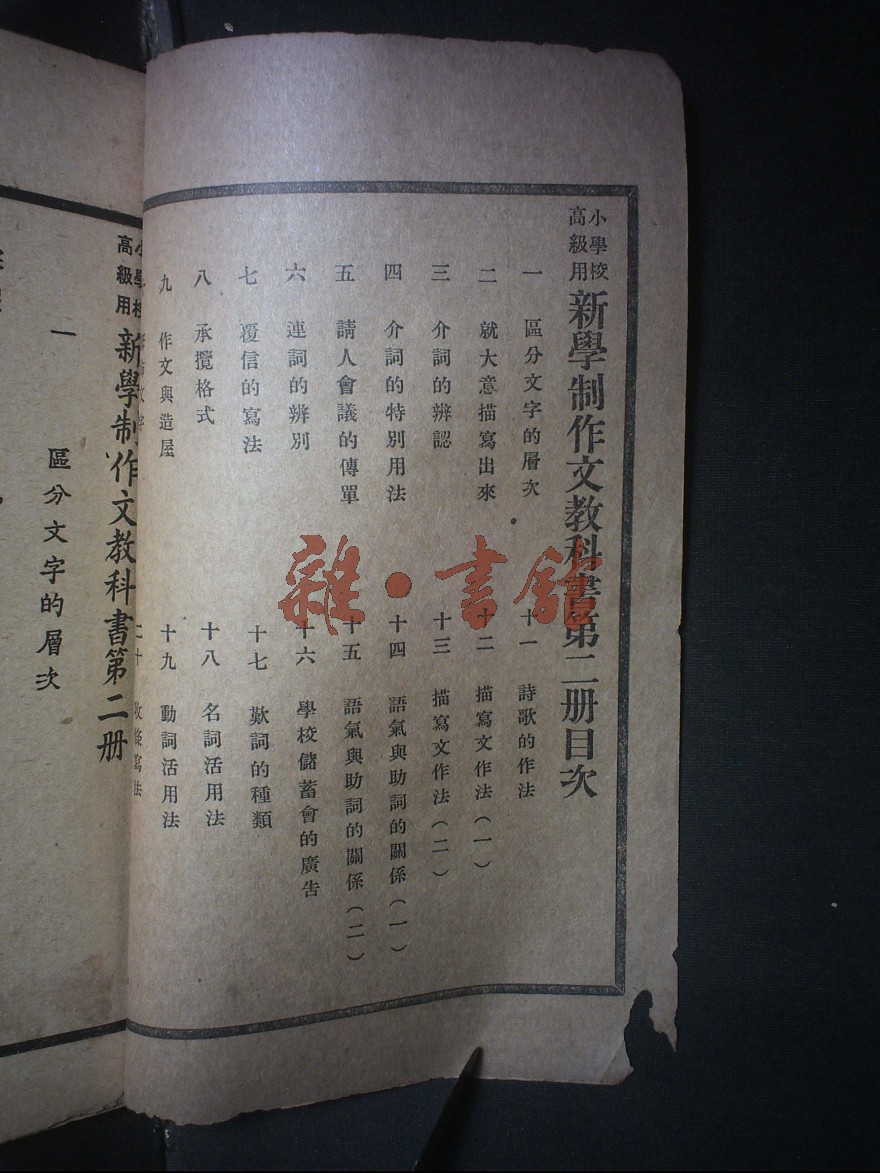 小學校高級用 新學制作文教科書第二册目次
一 區分文字的層次
十一 詩歌的作法
二 就大意描寫出來
十二 描寫文作法(一)
三 介詞的辨認
十三 描寫文作法(二)
四 介詞的特別用法
十四 語氣與助詞的關係(一)
五 請人會議的傳單
十五 語氣與助詞的關係(二)
六 連詞的辨別
十六 學校儲蓄會的廣告
七 覆信的寫法
十七 歎詞的種類
八 承攬格式
十八 名詞活用法
九 作文與造屋
十九 動詞活用法
二十 收條寫法
小學校高級用 新學制作文教科書第二册
一 區分文字的層次
雜·書館